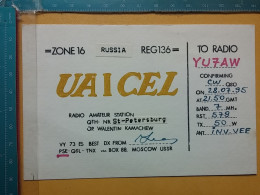 =ZONE 16 RUSSIA REG136= TO RADIO
YU7AW
CONFIRMING
CW QSO
UA1CEL
ON 28.07.95
AT 21.50 GMT
BAND 7 MHz
RADIO AMATEUR STATION
RST 579
QTH: NR St-Petersburg
TX 50 W
OP. WALENTIN KAMACHEW
ANT: INV.VEE
VY 73 ES BEST DX FROM
PSE QSL-TNX VIA BOX 88, MOSCOW USSR